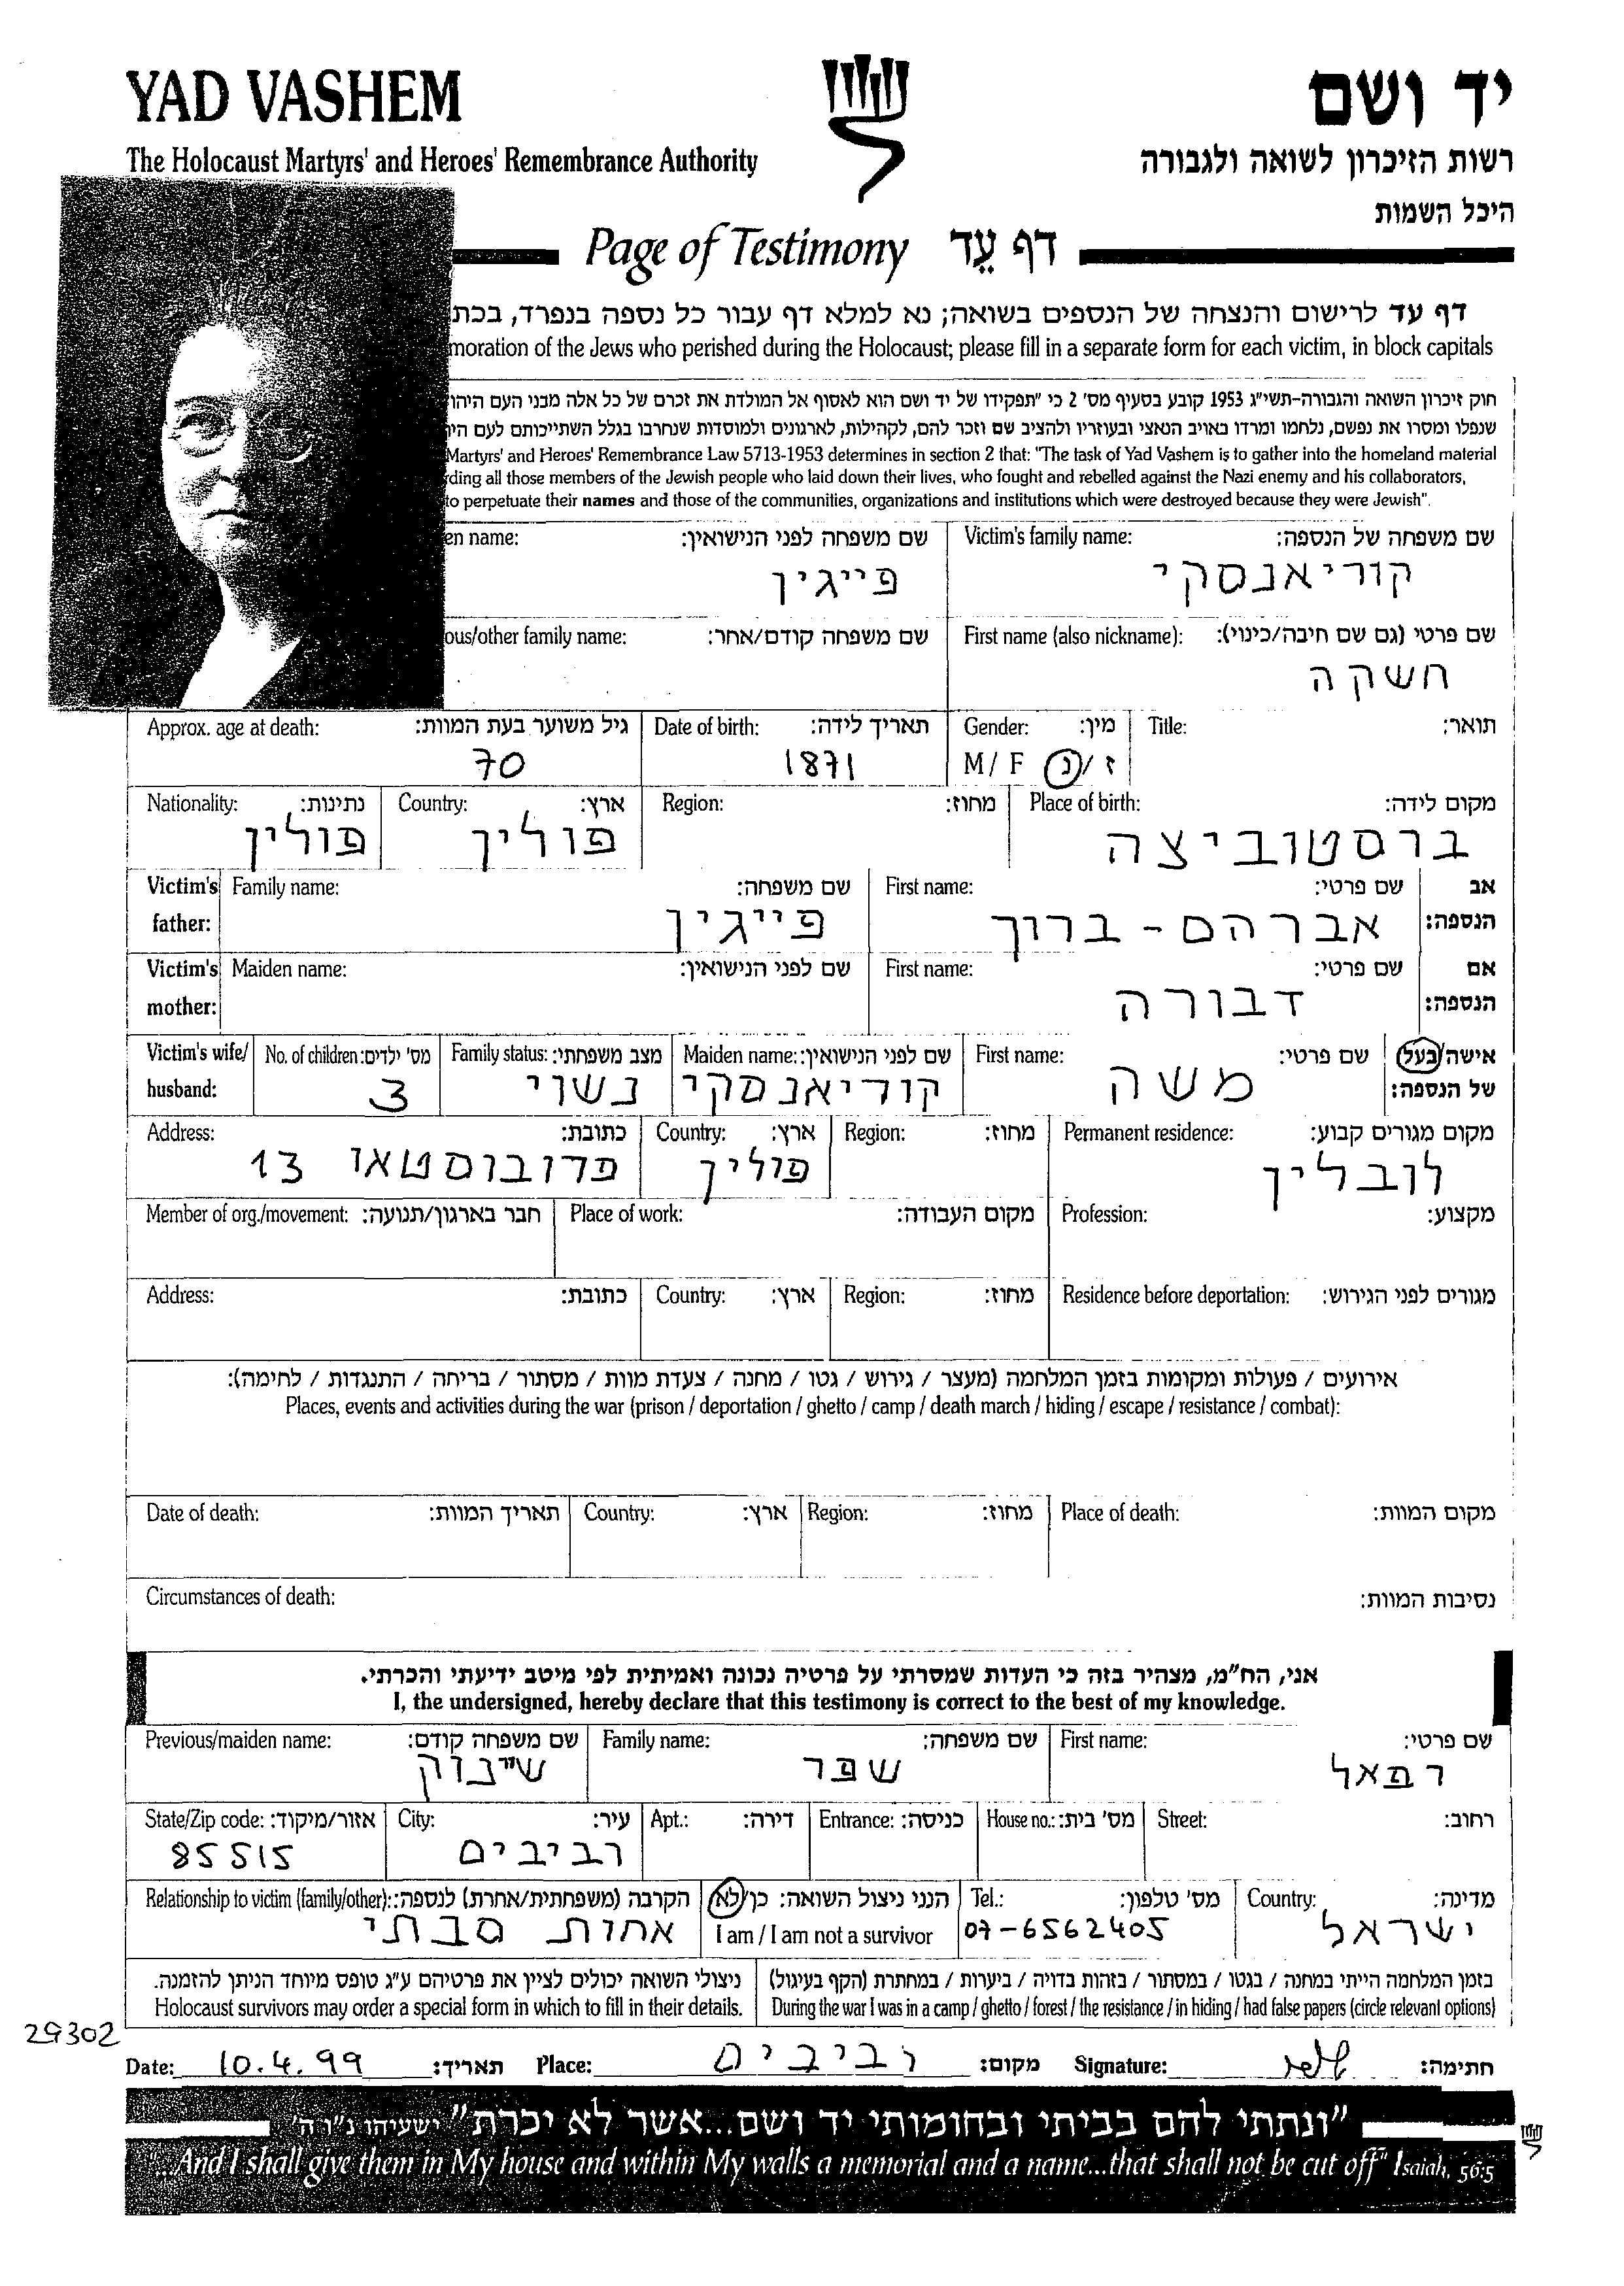 YAD VASHEM
יד ושם
The Holocaust Martyrs' and Heroes' Remembrance Authority
רשות הזיכרון לשואה ולגבורה
היכל השמות
Page of Testimony דף עֵד
דף עד לרישום והנצחה של הנספים בשואה; נא למלא דף עבור כל נספה בנפרד, בכת
moration of the Jews who perished during the Holocaust; please fill in a separate form for each victim, in block capitals
חוק זיכרון השואה והגבורה-תשי"ג 1953 קובע בסעיף מס' 2 כי "תפקידו של יד ושם הוא לאסוף אל המולדת את זכרם של כל אלה מבני העם היהו
שנפלו ומסרו את נפשם, נלחמו ומרדו באויב הנאצי ובעוזריו ולהציב שם וזכר להם, לקהילות, לארגונים ולמוסדות שנחרבו בגלל השתייכותם לעם הי
Martyrs' and Heroes' Remembrance Law 5713-1953 determines in section 2 that: "The task of Yad Vashem is to gather into the homeland material
ding all those members of the Jewish people who laid down their lives, who fought and rebelled against the Nazi enemy and his collaborators,
to perpetuate their names and those of the communities, organizations and institutions which were destroyed because they were Jewish".
Victim's family name: שם משפחה של הנספה:
קוריאנסקי
en name: שם משפחה לפני הנישואין:
פייגין
First name (also nickname): שם פרטי (גם שם חיבה/כינוי):
חשקה
ous/other family name: שם משפחה קודם/אחר:
Title: תואר:
Gender: מין:
M / F ז / נ
Date of birth: תאריך לידה:
1871
Approx. age at death: גיל משוער בעת המוות:
70
Place of birth: מקום לידה:
ברסטוביצה
Region: מחוז:
Country: ארץ:
פולין
Nationality: נתינות:
פולין
Victim's father: אב הנספה:
First name: שם פרטי:
אברהם - ברוך
Family name: שם משפחה:
פייגין
Victim's mother: אם הנספה:
First name: שם פרטי:
דבורה
Maiden name: שם לפני הנישואין:
Victim's wife/ husband: אישה/בעל של הנספה:
First name: שם פרטי:
משה
Maiden name: שם לפני הנישואין:
קוריאנסקי
Family status: מצב משפחתי:
נשוי
No. of children: מס' ילדים:
3
Permanent residence: מקום מגורים קבוע:
לובלין
Region: מחוז:
Country: ארץ:
פולין
Address: כתובת:
פדובוסטאו 13
Profession: מקצוע:
Place of work: מקום העבודה:
Member of org./movement: חבר בארגון/תנועה:
Residence before deportation: מגורים לפני הגירוש:
Region: מחוז:
Country: ארץ:
Address: כתובת:
אירועים / פעולות ומקומות בזמן המלחמה (מעצר / גירוש / גטו / מחנה / צעדת מוות / מסתור / בריחה / התנגדות / לחימה):
Places, events and activities during the war (prison / deportation / ghetto / camp / death march / hiding / escape / resistance / combat):
Place of death: מקום המוות:
Region: מחוז:
Country: ארץ:
Date of death: תאריך המוות:
Circumstances of death: נסיבות המוות:
אני, הח"מ, מצהיר בזה כי העדות שמסרתי על פרטיה נכונה ואמיתית לפי מיטב ידיעתי והכרתי.
I, the undersigned, hereby declare that this testimony is correct to the best of my knowledge.
First name: שם פרטי:
רפאל
Family name: שם משפחה:
שפר
Previous/maiden name: שם משפחה קודם:
Street: רחוב:
House no.: מס' בית:
Entrance: כניסה:
Apt.: דירה:
City: עיר:
רביבים
State/Zip code: אזור/מיקוד:
85515
Country: מדינה:
ישראל
Tel.: מס' טלפון:
07-6562405
הנני ניצול השואה: כן/לא
I am / I am not a survivor
Relationship to victim (family/other): הקרבה (משפחתית/אחרת) לנספה:
אחות סבתי
בזמן המלחמה הייתי במחנה / בגטו / במסתור / בזהות בדויה / ביערות / במחתרת (הקף בעיגול)
During the war I was in a camp / ghetto / forest / the resistance / in hiding / had false papers (circle relevant options)
ניצולי השואה יכולים לציין את פרטיהם ע"ג טופס מיוחד הניתן להזמנה.
Holocaust survivors may order a special form in which to fill in their details.
29302
Date: 10.4.99 תאריך: Place: רביבים מקום: Signature: חתימה:
"ונתתי להם בביתי ובחומותי יד ושם...אשר לא יכרת" ישעיהו נ"ו ה'
"...And I shall give them in My house and within My walls a memorial and a name...that shall not be cut off" Isaiah, 56:5